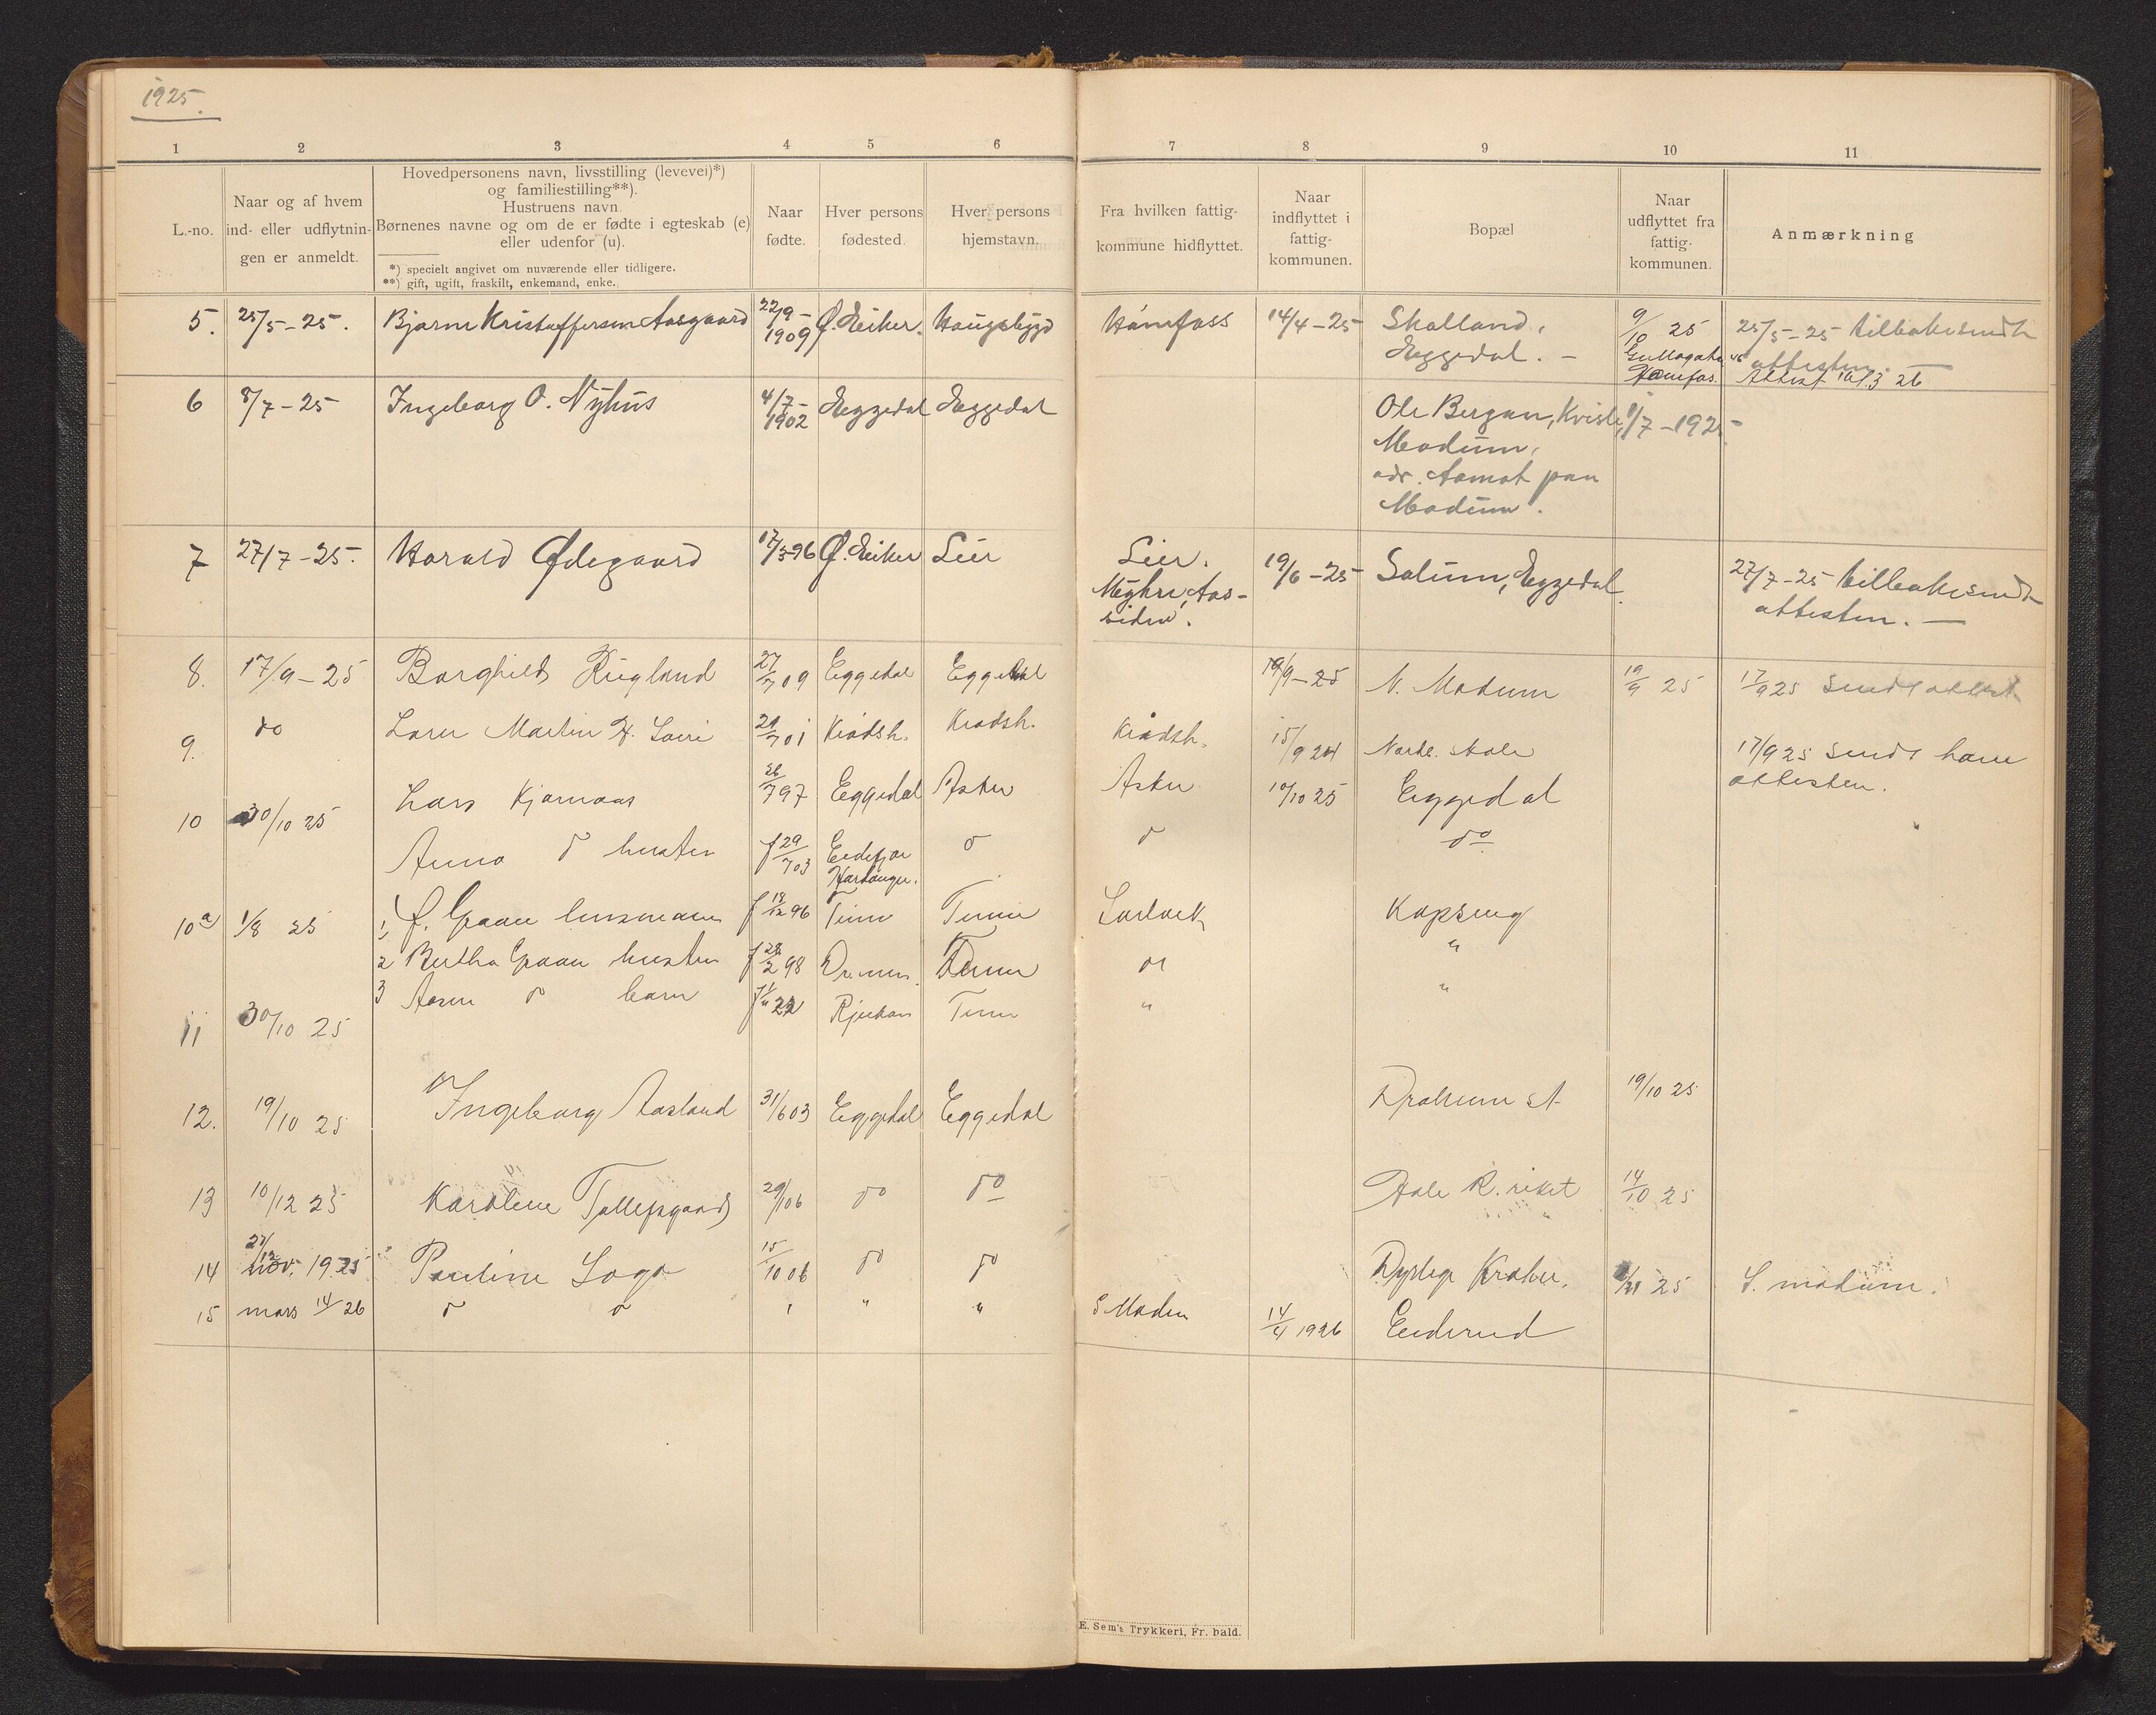 1925.
1 2 3 4 5 6 7 8 9 10 11
L.-no.
Naar og af hvem
ind- eller udflytnin-
gen er anmeldt.
Hovedpersonens navn, livsstilling (levevei)*)
og familiestilling**).
Hustruens navn
Børnenes navne og om de er fødte i egteskab (e)
eller udenfor (u).
*) specielt angivet om nuværende eller tidligere.
**) gift, ugift, fraskilt, enkemand, enke.
Naar
fødte.
Hver persons
fødested.
Hver persons
hjemstavn.
Fra hvilken fattig-
kommune hidflyttet.
Naar
indflyttet i
fattig-
kommunen.
Bopæl
Naar
udflyttet fra
fattig-
kommunen.
Anmærkning
5. 25/5-25. Bjarne Kristoffersen Aasgaard 22/9-1909 Ø. Eiker. Haugsbygd Hønefoss 14/4-25 Skalland, 9/10 25 25/5-25 tilbakesendt
Eggedal. - Hønefos. attesten.
Attest 16/3 26
6 8/7-25 Ingeborg O. Nyhus 4/7-1902 Eggedal Eggedal Ole Bergan, Kvisle, 8/7-1925
Modum,
adr. Aamot paa
Modum.
7 27/7-25. Harald Ødegaard 17/5-96 Ø. Eiker Lier Lier. 19/6-25 Solum, Eggedal. 27/7-25 tilbakesendt
Myhre, Aas- attesten. -
siden.
8. 17/9-25 Borghild Rugland 27/7 09 Eggedal Eggedal 19/9-25 N. Modum 19/9 25 17/9 25 sendt attest
9. do Martin H. 29/7 01 Krødsh. Krødsh. Krødsh. 15/9 24 17/9 25 sendt ham
attesten.
10 30/10 25 Lars Kjornaas 26/7 97 Eggedal Asker Asker 10/10 25 Eggedal
Anna do hustru f 29/7 03 Eidsfjor do do do
Hardanger.
10a 1/8 25 1, Graan f 18/12 96 Tinn Tinn Kopseng
2 Bertha Graan hustru f 28/2 98 Tinn do "
3 do barn 22 Rjukan Tinn " "
11 30/10 25
12. 19/10 25 Ingeborg Aasland 31/6 03 Eggedal Eggedal st. 19/10 25
13 10/12 25 Karoline Tollefsgaard 29/1 06 do do Hole R. riket 14/10 25
14 27/12 nov. 1925 Pauline Soga 15/10 06 do do 25 S. modum.
15 mars 14/26 do do " " " S Modum 14/4 1926 Eiderud
E. Sem's Trykkeri, Fr. hald.